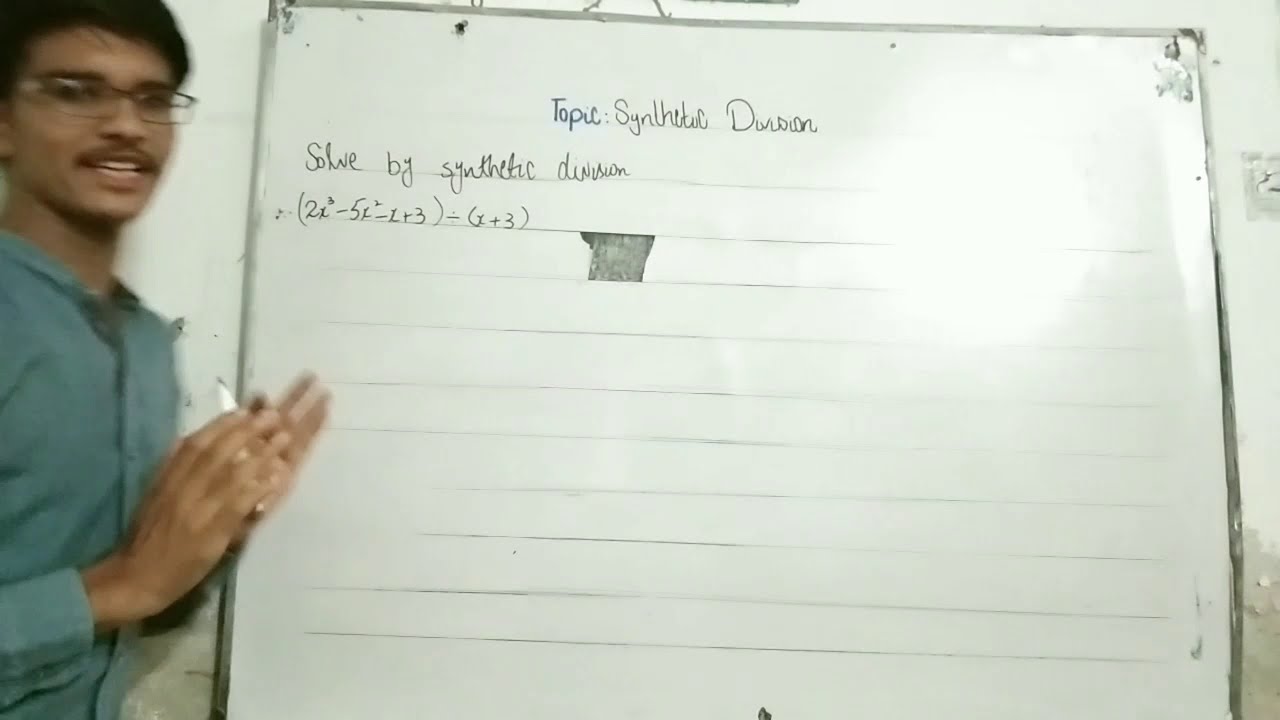 Topic: Synthetic Division
Solve by synthetic division
∴ (2x³-5x²-x+3) ÷ (x+3)